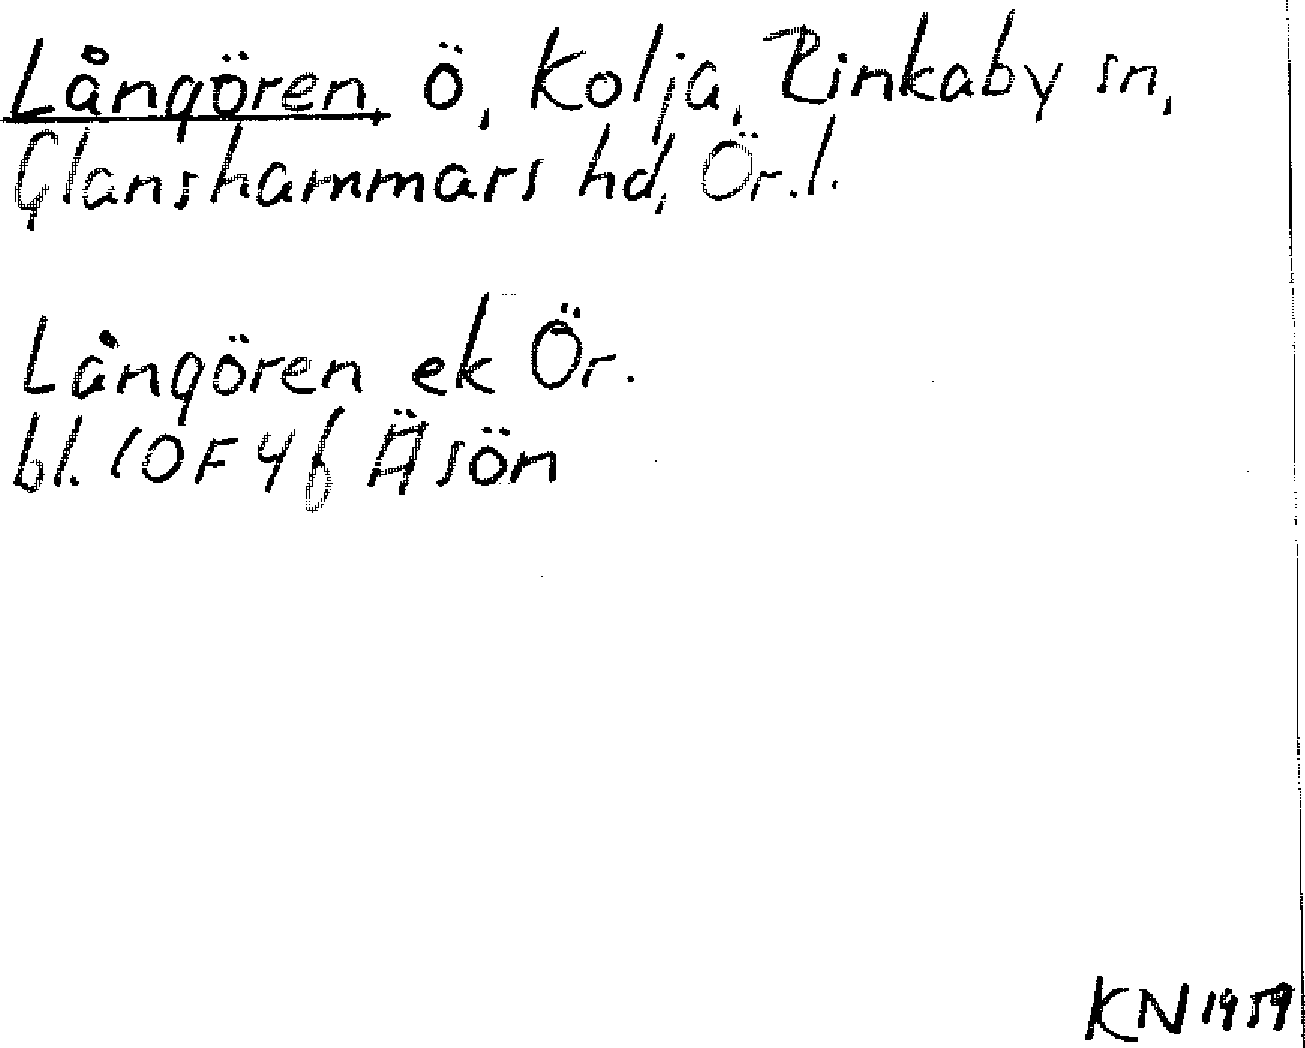 Långören, ö, Kolja, Rinkaby sn,
Glanshammars hd, Ör.l.
Långören ek Ör.
bl. 10F4f Äsön
KN 1959